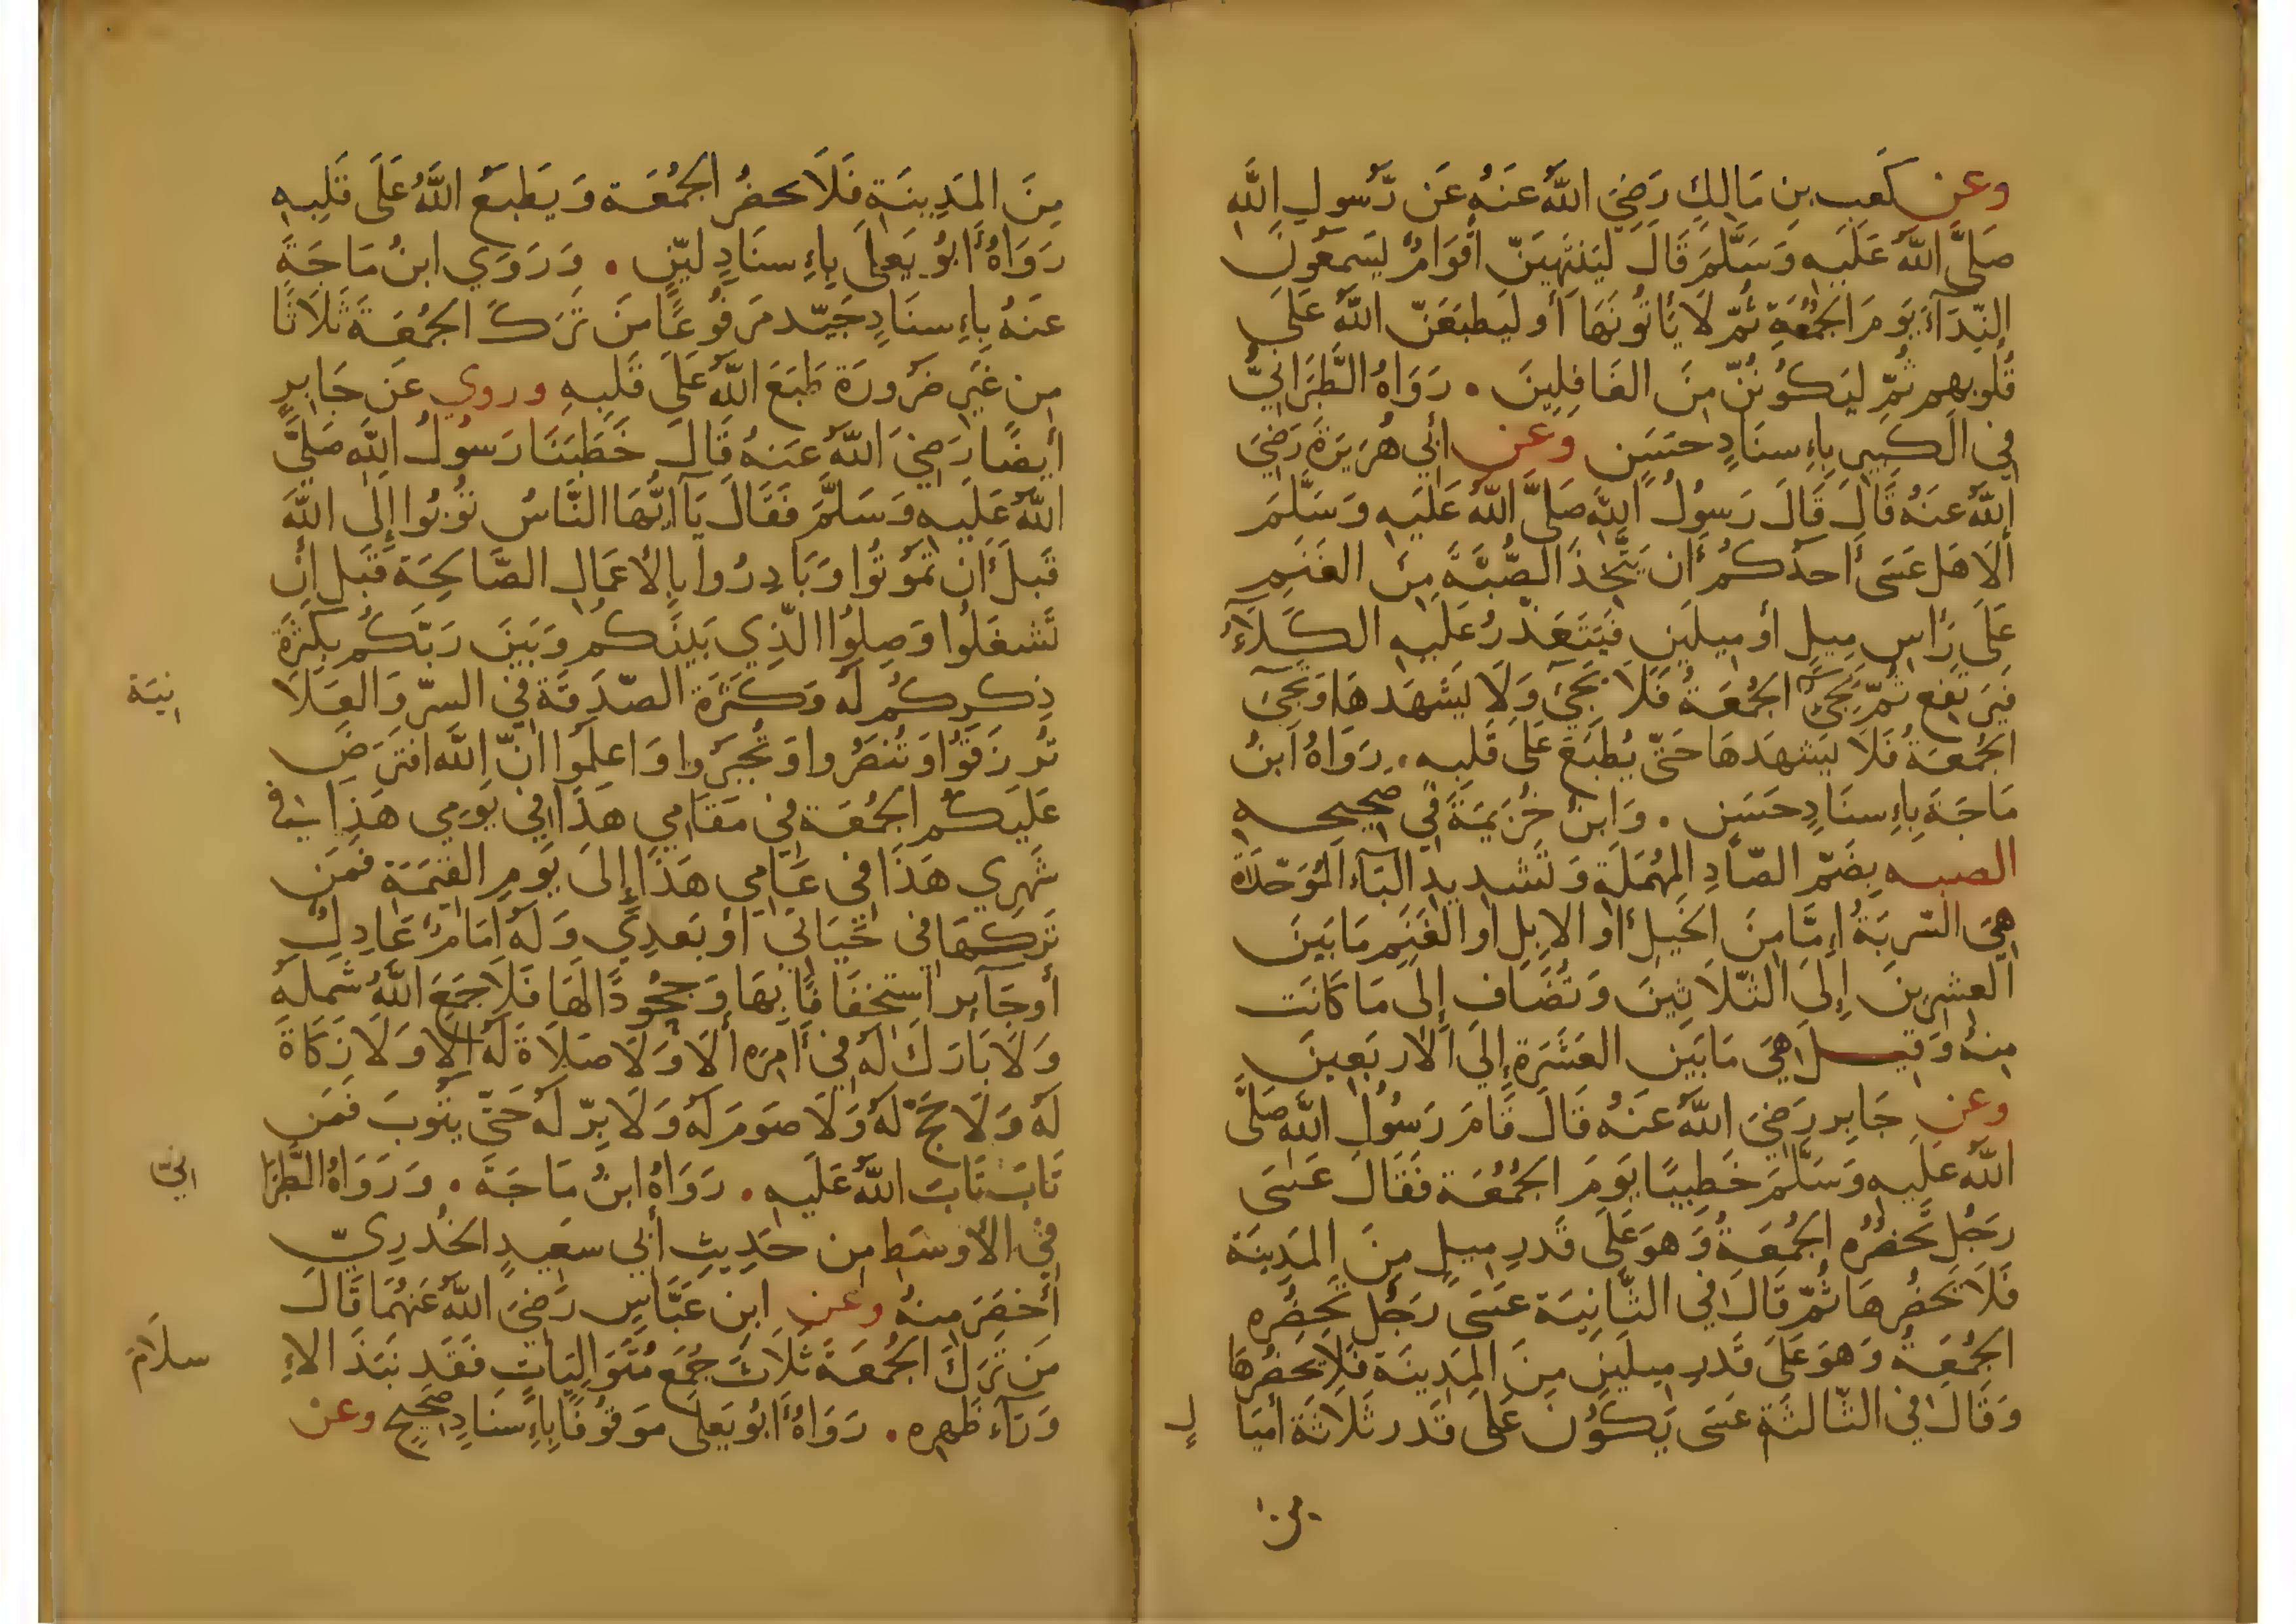 وعن كَعب بن مَالِكٍ رَضِيَ اللَّهُ عَنهُ عَن رَّسُولِ اللَّهِ
صَلَّى اللَّهُ عَلَيهِ وَسَلَّمَ قَالَ لَيَنتَهِيَنّ أَقوَامٌ يَسمَعُونَ
النِّدَآءَ يَومَ الجُمُعَةِ ثُمّ لَا يَأتُونَهَا أَو لَيَطبَعَنّ اللَّهُ عَلَى
قُلُوبِهِم ثُمّ لَيَكُونُنّ مِنَ الغَافِلِينَ . رَوَاهُ الطَّبَرَانِيُّ
فِي الكَبِيرِ بِإِسنَادٍ حَسَنٍ وعن أَبِي هُرَيرَةَ رَضِيَ
اللَّهُ عَنهُ قَالَ قَالَ رَسُولُ اللَّهِ صَلَّى اللَّهُ عَلَيهِ وَسَلَّمَ
أَلَا هَل عَسَى أَحَدُكُم أَن يَتَّخِذَ الصُّبَّةَ مِنَ الغَنَمِ
عَلَى رَاسِ مِيلٍ أَو مِيلَينِ فَيَتَعَذّرُ عَلَيهِ الكَلَآءُ
فَيَرتَفِع ثُمّ تَجِيُ الجُمُعَةُ فَلَا يَجِيُ وَلَا يَشهَدهَا وَتَجِيُ
الجُمُعَةُ فَلَا يَشهَدهَا حَتّى يُطبَعَ عَلَى قَلبِهِ . رَوَاهُ ابنُ
مَاجَةَ بِإِسنَادٍ حَسَنٍ . وَابنُ خُزَيمَةَ فِي صَحِيحِهِ
الصبه بِضَمّ الصّادِ المُهمَلَةِ وَتَشدِيدِ البَآءِ المُوَحّدَة
هِيَ السّربَةُ إِمّا مِنَ الخَيلِ أَو الإِبِلِ أَو الغَنَمِ مَا بَينَ
العِشرِينَ إِلَى الثّلَاثِينَ وَتُضَافُ إِلَى مَا كَانَت
مِنهُ وَقِيلَ هِيَ مَا بَينَ العَشَرَةِ إِلَى الأَربَعِينَ
وعن جَابِرٍ رَضِيَ اللَّهُ عَنهُ قَالَ قَامَ رَسُولُ اللَّهِ صَلَّى
اللَّهُ عَلَيهِ وَسَلَّمَ خَطِيبًا يَومَ الجُمُعَةِ فَقَالَ عَسَى
رَجُل تَحضُرُه الجُمُعَةُ وَهوَ عَلَى قَدرِ مِيلٍ مِنَ المَدِينَةِ
فَلَا يَحضُرهَا ثُمّ قَالَ فِي الثّانِيَة عَسَى رَجُل تَحضُرُه
الجُمُعَةُ وَهوَ عَلَى قَدرِ مِيلَينِ مِنَ المَدِينَة فَلَا يَحضُرهَا
وَقَالَ فِي الثّالثَة عَسَى يَكُونُ عَلَى قَدر ثَلَاثَة أَميَا لِ
مِنَ المَدِينَةِ فَلَا يحضُر الجُمُعَة وَيَطبَع اللَّهُ عَلَى قَلبِهِ
رَوَاهُ أَبُو يَعلَى بِإِسنَادٍ لَيّنٍ . وَرَوَى ابنُ مَاجَةَ
عَنهُ بِإِسنَادٍ جَيّد مَرفُوعًا مَن تَرَكَ الجُمُعَة ثَلَاثًا
مِن غَيرِ ضَرُورَة طَبَعَ اللَّهُ عَلَى قَلبِهِ وروي عَن جَابِرٍ
أَيضًا رَضِيَ اللَّهُ عَنهُ قَالَ خَطَبَنَا رَسُولُ اللَّهِ صَلَّى
اللَّهُ عَلَيهِ وَسَلَّمَ فَقَالَ يَا أَيُّهَا النَّاسُ تُوبُوا إِلَى اللَّهِ
قَبلَ أَن تَمُوتُوا وَبَادِرُوا بِالأَعمَالِ الصَّالِحَة قَبلَ أَن
تَشغَلُوا وَصِلُوا الّذِي بَينَكُم وَبَينَ رَبّكُم بِكَثرَة
ذِكرِكُم لَه وَكَثرَة الصّدَقَة فِي السرّ وَالعَلَا نِيَة
تُرزَقُوا وَتُنصَرُوا وَتُجبَرُوا وَاعلَمُوا أَنّ اللَّهَ افتَرَضَ
عَلَيكُم الجُمُعَة فِي مَقَامِي هَذَا فِي يَومِي هَذَا فِي
شَهرِي هَذَا فِي عَامِي هَذَا إِلَى يَومِ القِيمَةِ فَمَن
تَرَكهَا فِي حَيَاتِي أَو بَعدِي وَلَهُ إِمَامٌ عَادِلٌ
أَو جَآيِر استِخفَافًا بِهَا وَجُحُودًا لَهَا فَلَا جَمَعَ اللَّهُ شَملَهُ
وَلَا بَارَكَ لَه فِي أَمرِه أَلَا وَلَا صَلَاةَ لَهُ أَلَا وَلَا زَكَاةَ
لَهُ وَلَا حَجّ لَهُ وَلَا صَومَ لَهُ وَلَا بِرّ لَهُ حَتّى يَتُوبَ فَمَن
تَابَ تَابَ اللَّهُ عَلَيهِ . رَوَاهُ ابنُ مَاجَةَ . وَرَوَاهُ الطَّبَرَا نِيّ
فِي الأَوسَطِ مِن حَدِيثِ أَبِي سَعِيدٍ الخُدرِيّ
أَخصَرَ مِنهُ وعن ابنِ عَبَّاسٍ رَضِيَ اللَّهُ عَنهُمَا قَالَ
مَن تَرَكَ الجُمُعَةَ ثَلَاثَ جُمَع مُتَوَالِيَاتٍ فَقَد نَبَذَ الإِ سلَامَ
وَرَآءَ ظَهرِه . رَوَاهُ أَبُو يَعلَى مَوقُوفًا بِإِسنَادٍ صَحِيحٍ وعن